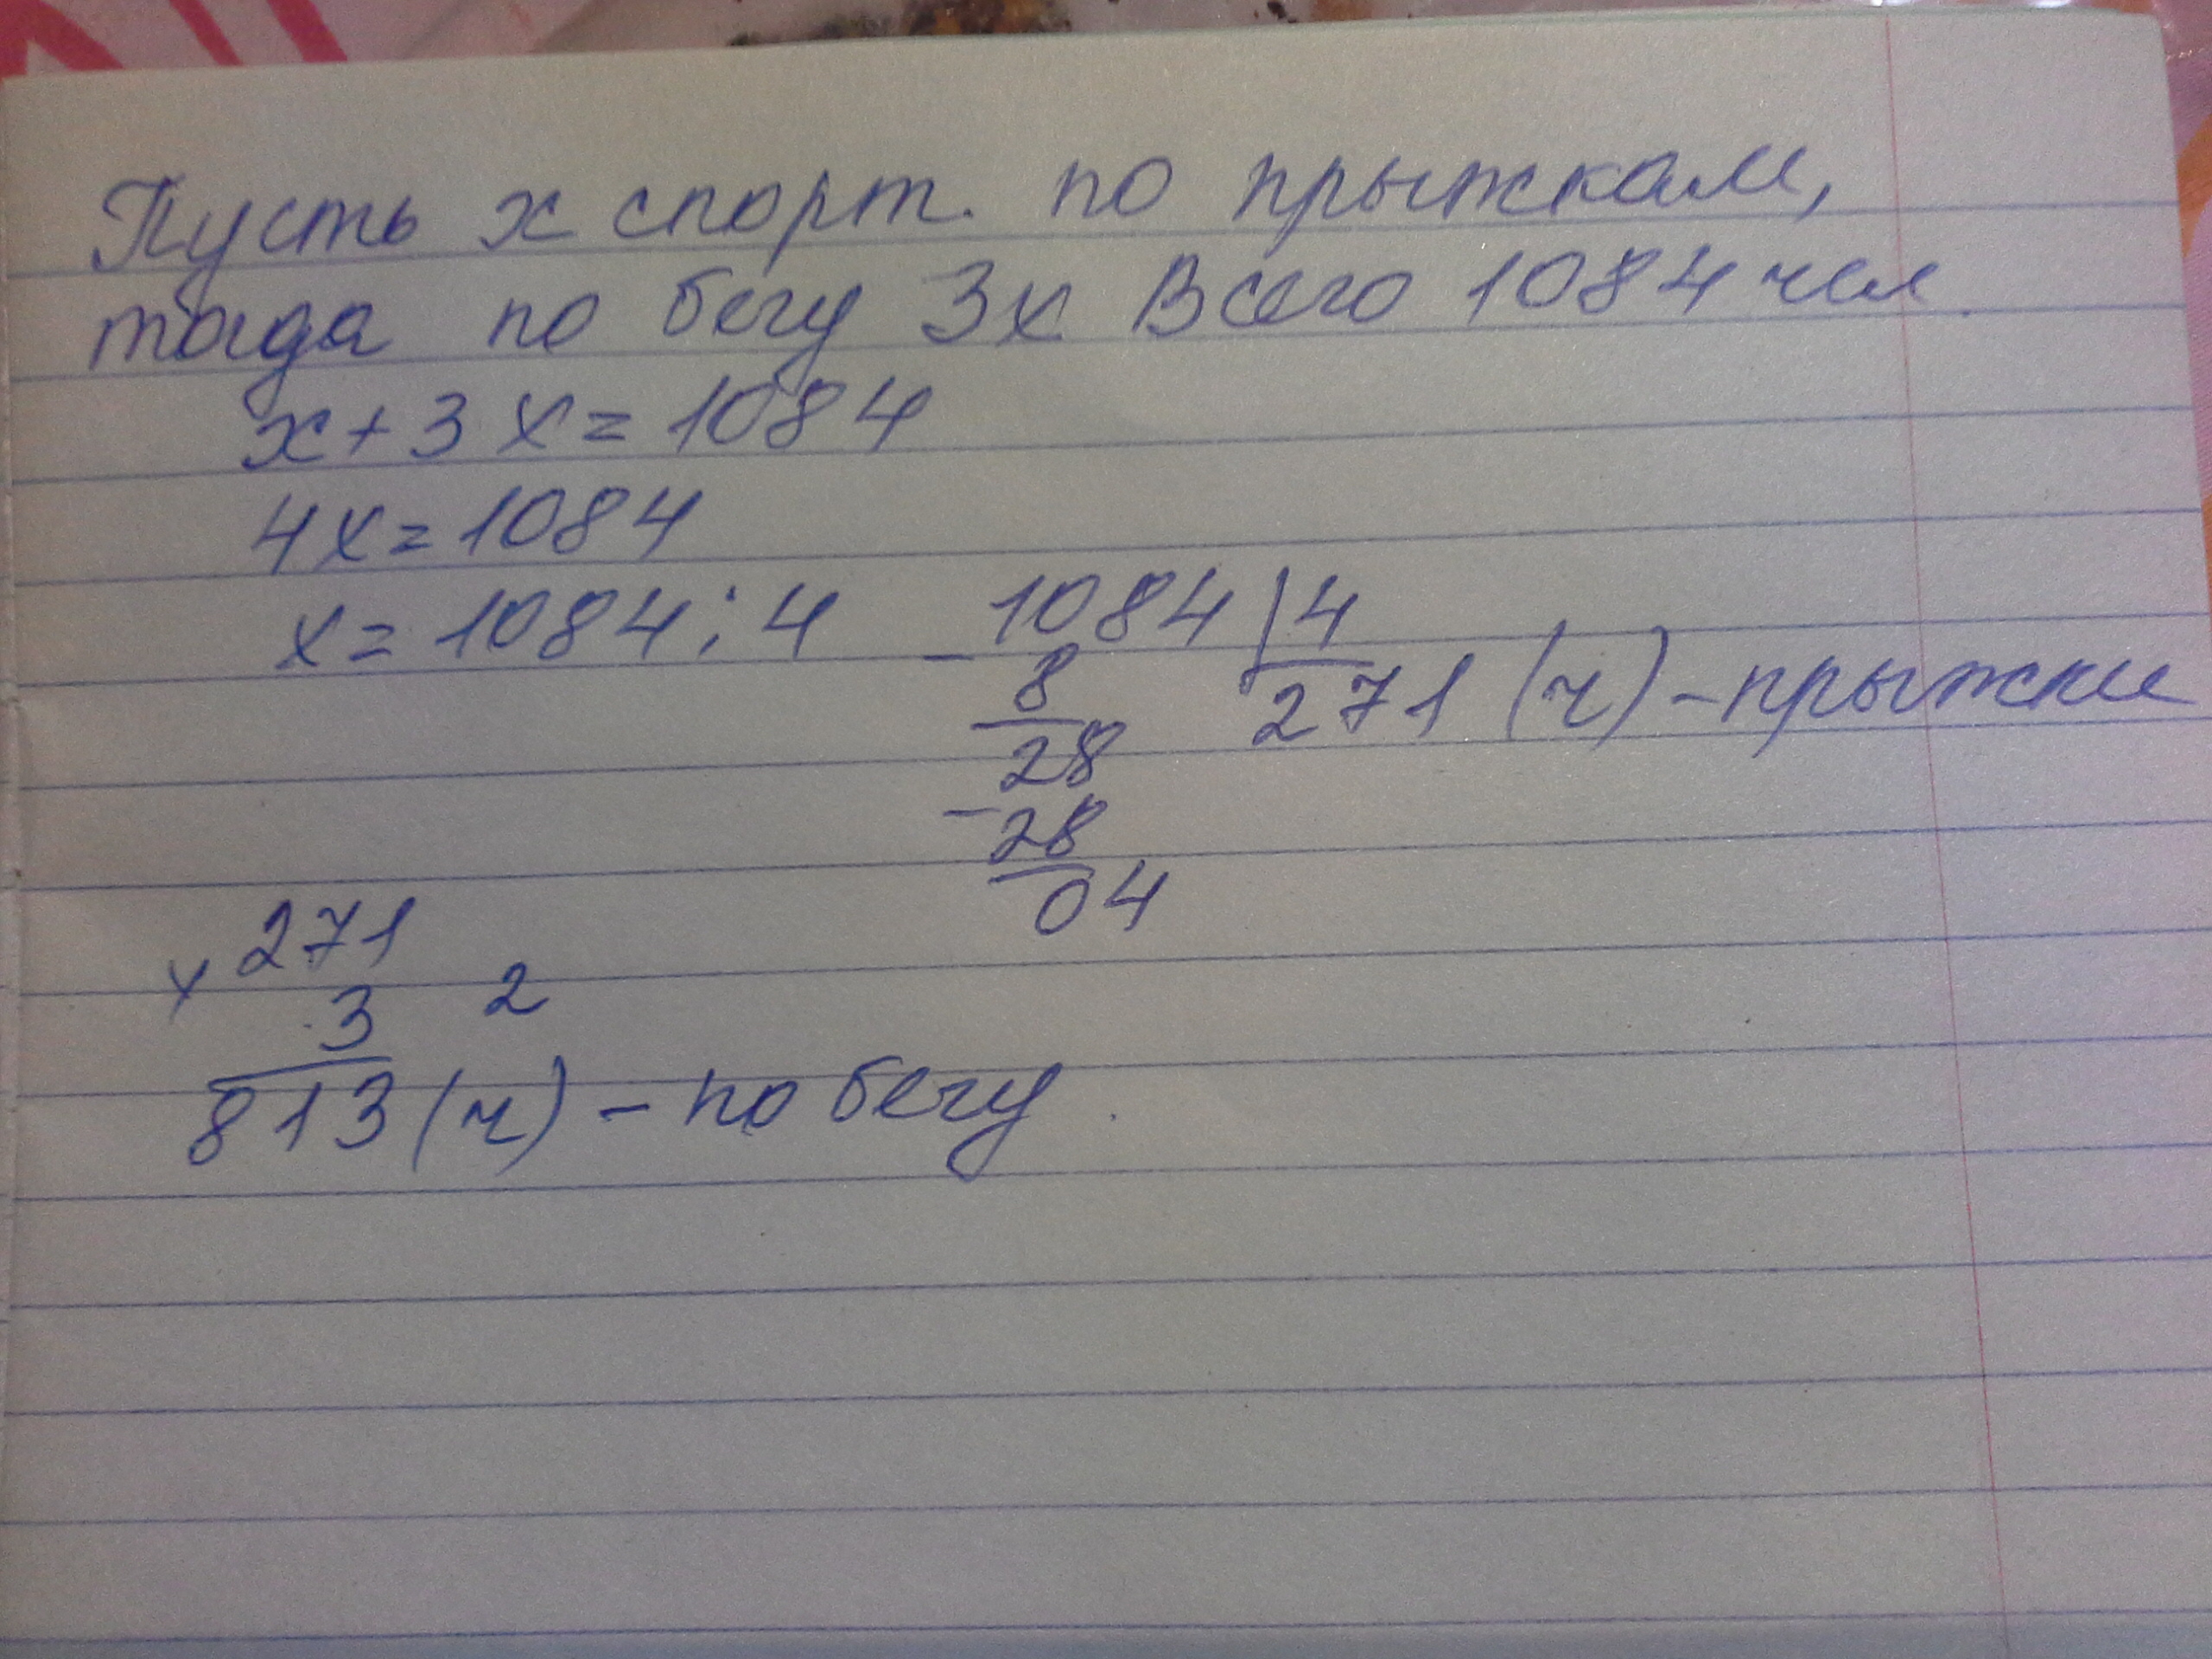 Пусть х спорт. по прыжкам,
тогда по бегу 3х Всего 1084 чел.
х + 3х = 1084
4х = 1084
х = 1084 : 4
- 1084 | 4
8
271 (ч) - прыжки
28
- 28
04
х 271
3 2
813 (ч) - по бегу.